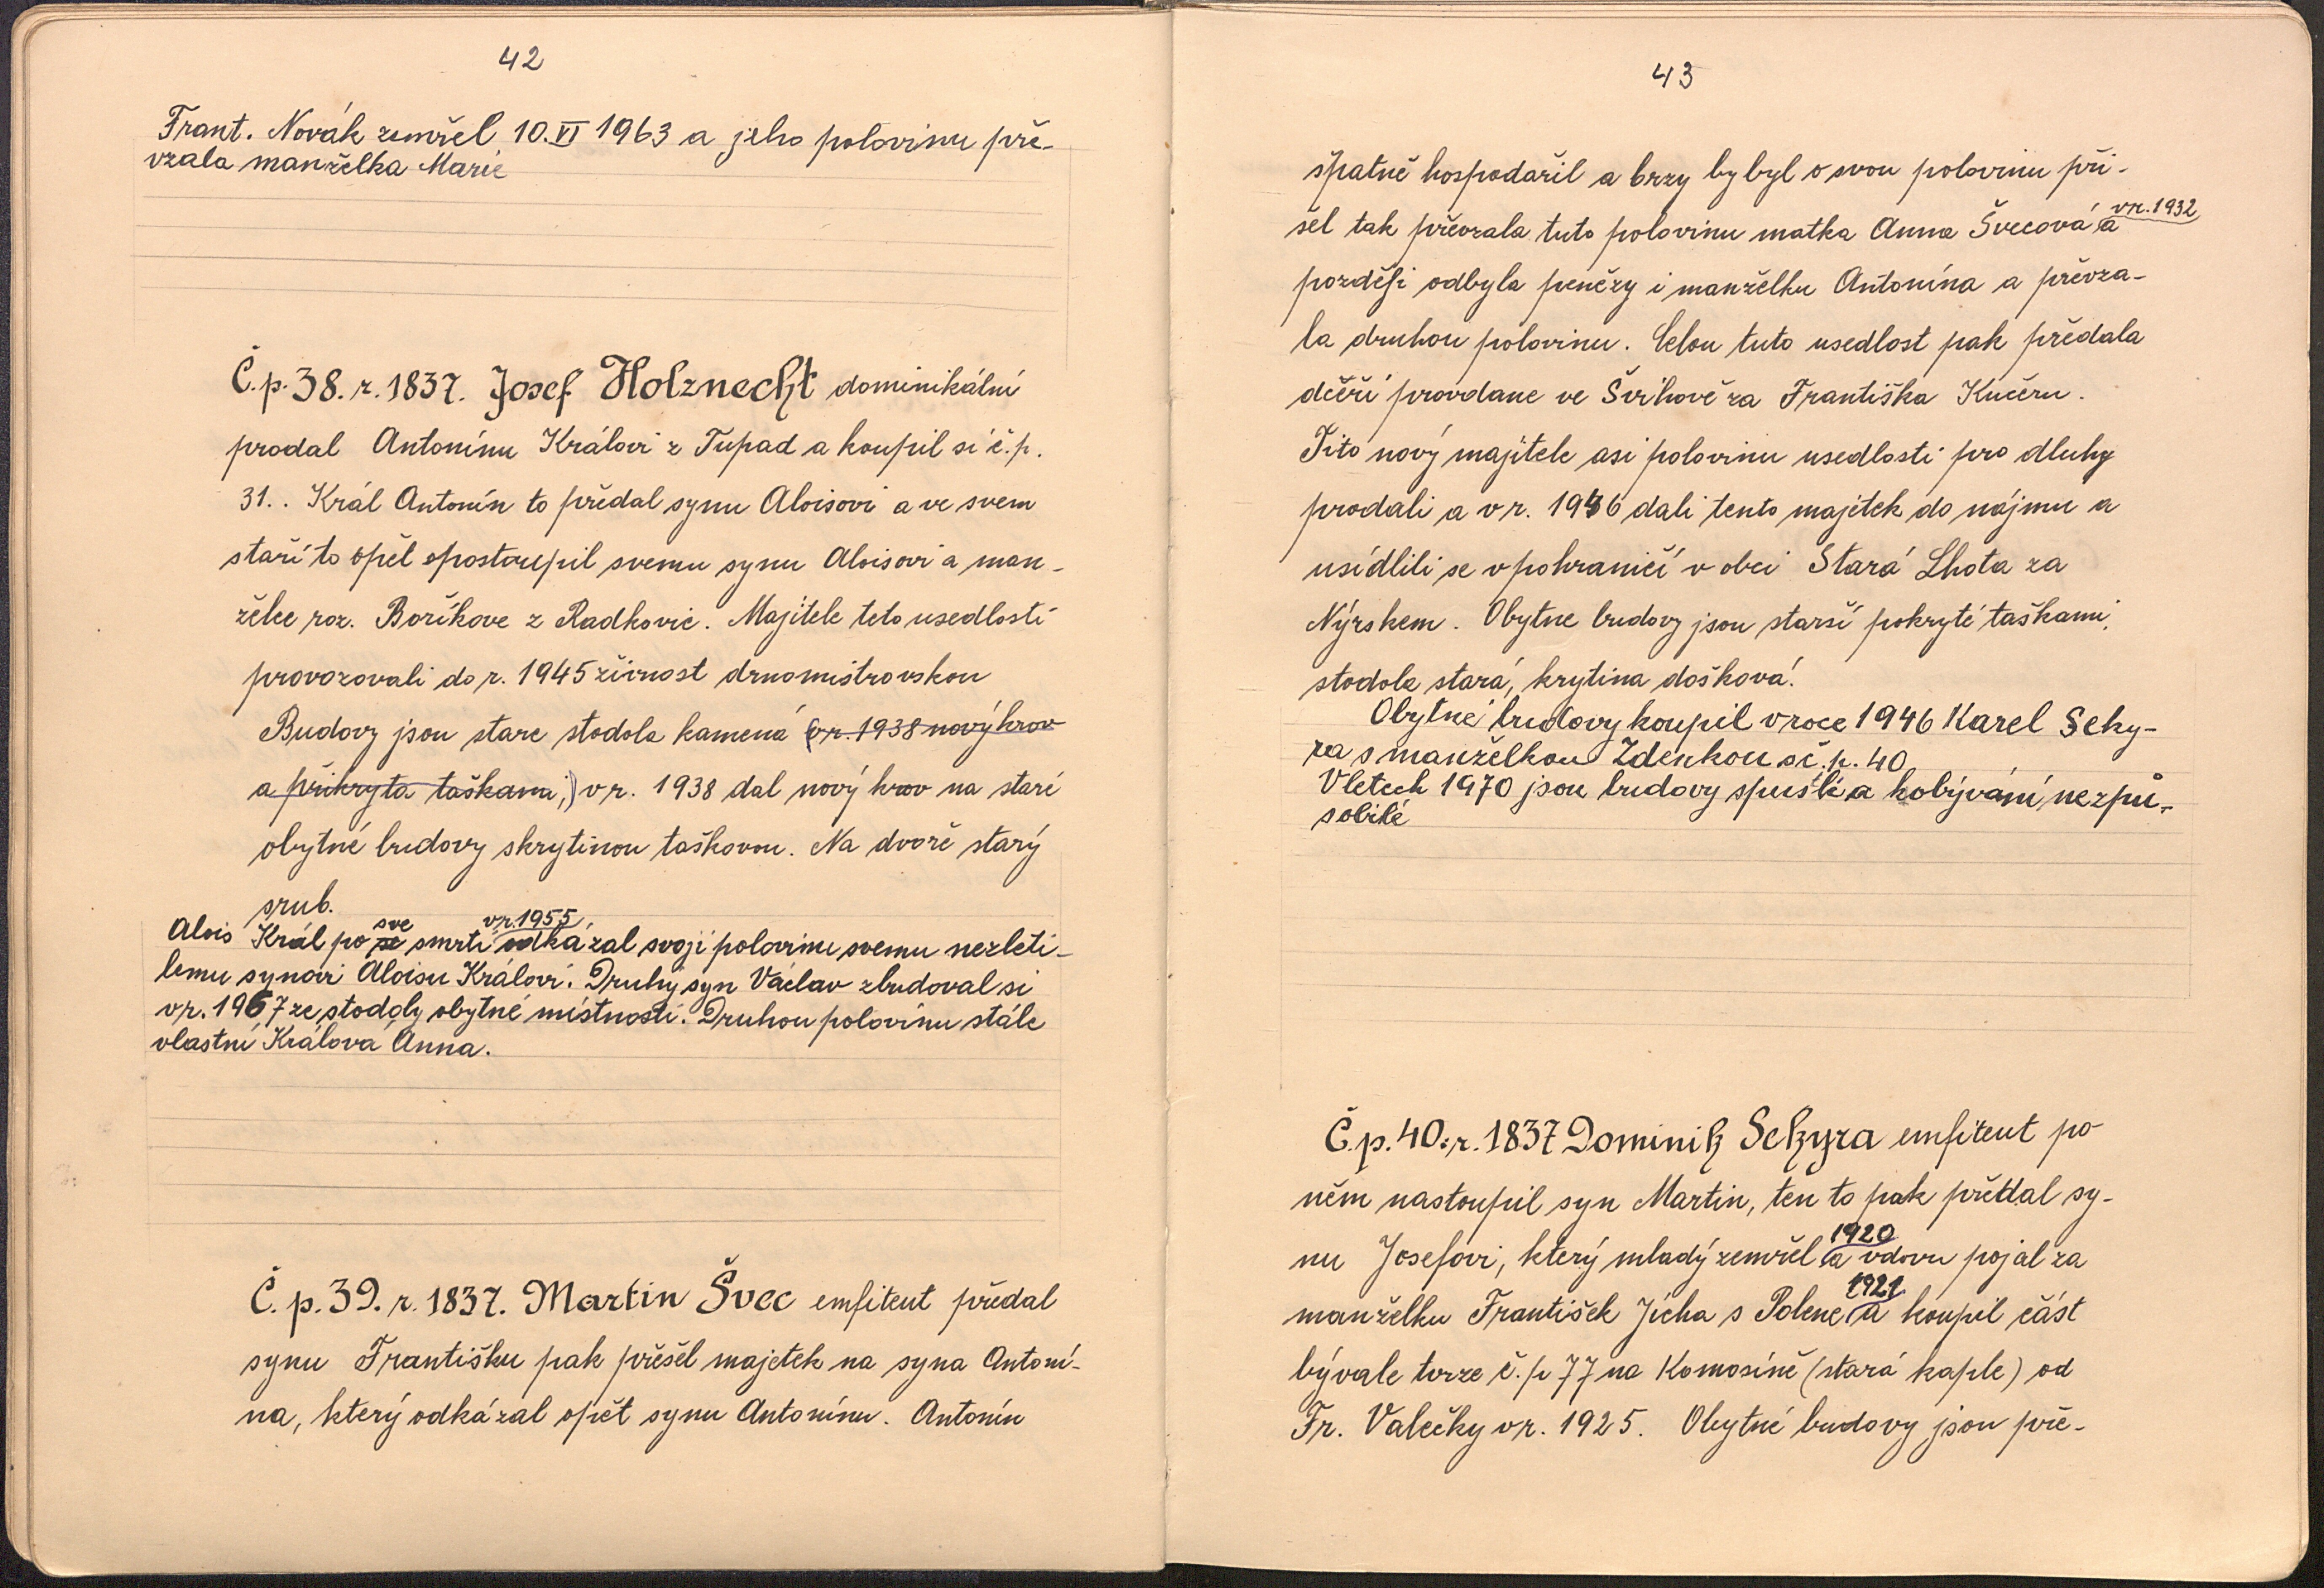 42
Frant. Novák zemřel 10. VI 1963 a jeho polovinu pře-
vzala manželka Marie
Č. p. 38. r. 1837. Josef Holznecht dominikální
prodal Antonínu Královi z Tupad a koupil si č. p.
31.. Král Antonín to předal synu Aloisovi a ve svem
staří to opět postoupil svemu synu Aloisovi a man-
želce roz. Boříkove z Radkovic. Majitele teto usedlosti
provozovali do r. 1945 živnost drnomistrovskou
Budovy jsou stare stodola kamená (v r. 1938 nový krov
a přikryta taškama,) v r. 1938 dal nový krov na staré
obytné budovy s krytinou taškovou. Na dvoře starý
srub.
sve v r. 1955
Alois Král po se smrti odkázal svoji polovinu svemu nezleti-
lemu synovi Aloisu Královi. Druhý syn Václav zbudoval si
v r. 1967 ze stodoly obytné místnosti. Druhou polovinu stále
vlastní Králova Anna.
Č. p. 39. r. 1837. Martin Švec emfiteut předal
synu Františku pak přešel majetek na syna Antoní-
na, který odkázal opět synu Antonínu. Antonín
43
špatně hospodařil a brzy by byl o svou polovinu při-
v r. 1932
šel tak převzala tuto polovinu matka Anna Švecová a
později odbyla penězy i manželku Antonína a převza-
la druhou polovinu. Celou tuto usedlost pak předala
dceři provdane ve Švihově za Františka Kučeru.
Tito nový majitele asi polovinu usedlosti pro dluhy
prodali a v r. 1946 dali tento majetek do nájmu a
usídlili se v pohraničí v obci Stará Lhota za
Nýrskem. Obytne budovy jsou starší pokryté taškami,
stodola stará, krytina došková.
Obytné budovy koupil v roce 1946 Karel Seky-
ra s manželkou Zdenkou s č. p. 40
V letech 1970 jsou budovy spustlé a k obývání nezpů-
sobilé
Č. p. 40. r. 1837 Dominik Sekyra emfiteut po
něm nastoupil syn Martin, ten to pak předal sy-
1920
nu Josefovi, který mladý zemřel a vdovu pojal za
1921
manželku František Jícha s Polene a koupil část
bývale tvrze č. p 77 na Komosíně (stará kaple) od
Fr. Valečky v r. 1925. Obytné budovy jsou pře-